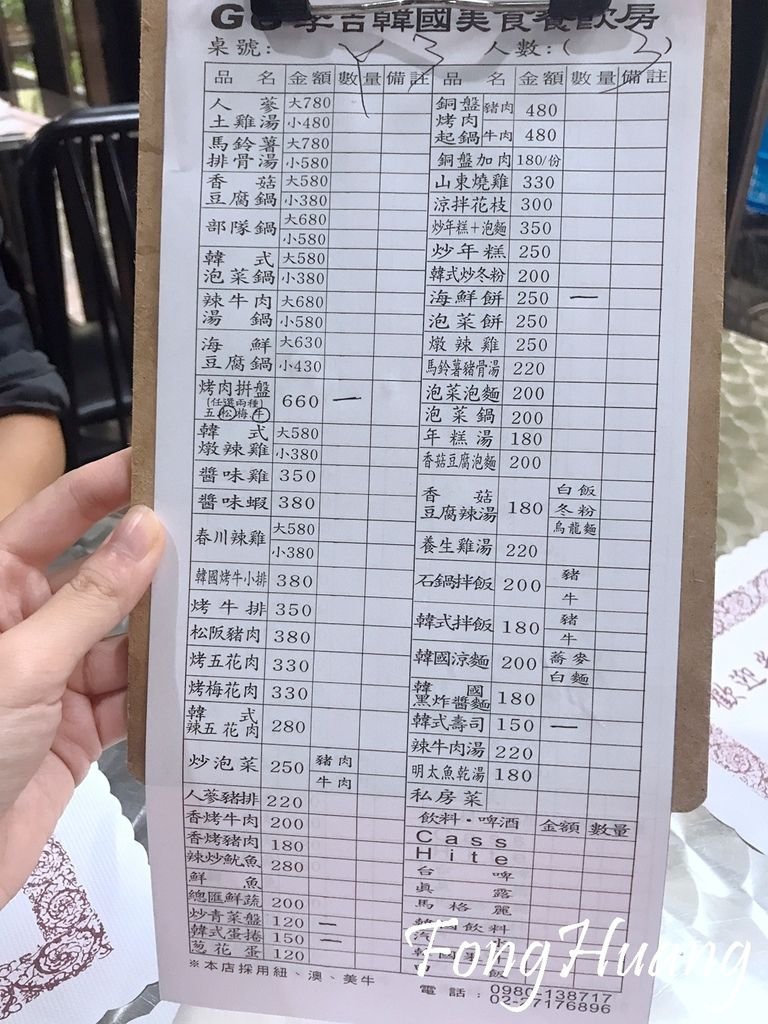 李台韓國美食餐飲房
桌號: Y 3 人數:( 3 )
品名 金額 數量 備註
人蔘土雞湯 大780 小480
馬鈴薯排骨湯 大780 小580
香菇豆腐鍋 大580 小380
部隊鍋 大680 小580
韓式泡菜鍋 大580 小380
辣牛肉湯鍋 大680 小580
海鮮豆腐鍋 大630 小430
烤肉拼盤 660 一
(任選兩種)
五松梅牛
韓式燉辣雞 大580 小380
醬味雞 350
醬味蝦 380
春川辣雞 大580 小380
韓國烤牛小排 380
烤牛排 350
松阪豬肉 380
烤五花肉 330
烤梅花肉 330
韓式辣五花肉 280
炒泡菜 250 豬肉 牛肉
人蔘豬排 220
香烤牛肉 200
香烤豬肉 180
辣炒魷魚 280
鮮魚
總匯鮮蔬 200
炒青菜盤 120 一
韓式蛋捲 150 一
蔥花蛋 120
※本店採用紐、澳、美牛
品名 金額 數量 備註
銅盤烤肉起鍋 豬肉 480 牛肉 480
銅盤加肉 180/份
山東燒雞 330
涼拌花枝 300
炒年糕+泡麵 350
炒年糕 250
韓式炒冬粉 200
海鮮餅 250 一
泡菜餅 250
燉辣雞 250
馬鈴薯豬骨湯 220
泡菜泡麵 200
泡菜鍋 200
年糕湯 180
香菇豆腐泡麵 200
香菇豆腐辣湯 180 白飯 冬粉 烏龍麵
養生雞湯 220
石鍋拌飯 200 豬 牛
韓式拌飯 180 豬 牛
韓國涼麵 200 蕎麥 白麵
韓國黑炸醬麵 180
韓式壽司 150 一
辣牛肉湯 220
明太魚乾湯 180
私房菜
飲料・啤酒 金額 數量
Cass
Hite
台啤
真露
馬格麗
韓國飲料
電話: 0980-138717
02-27176896
FongHuang
歡迎